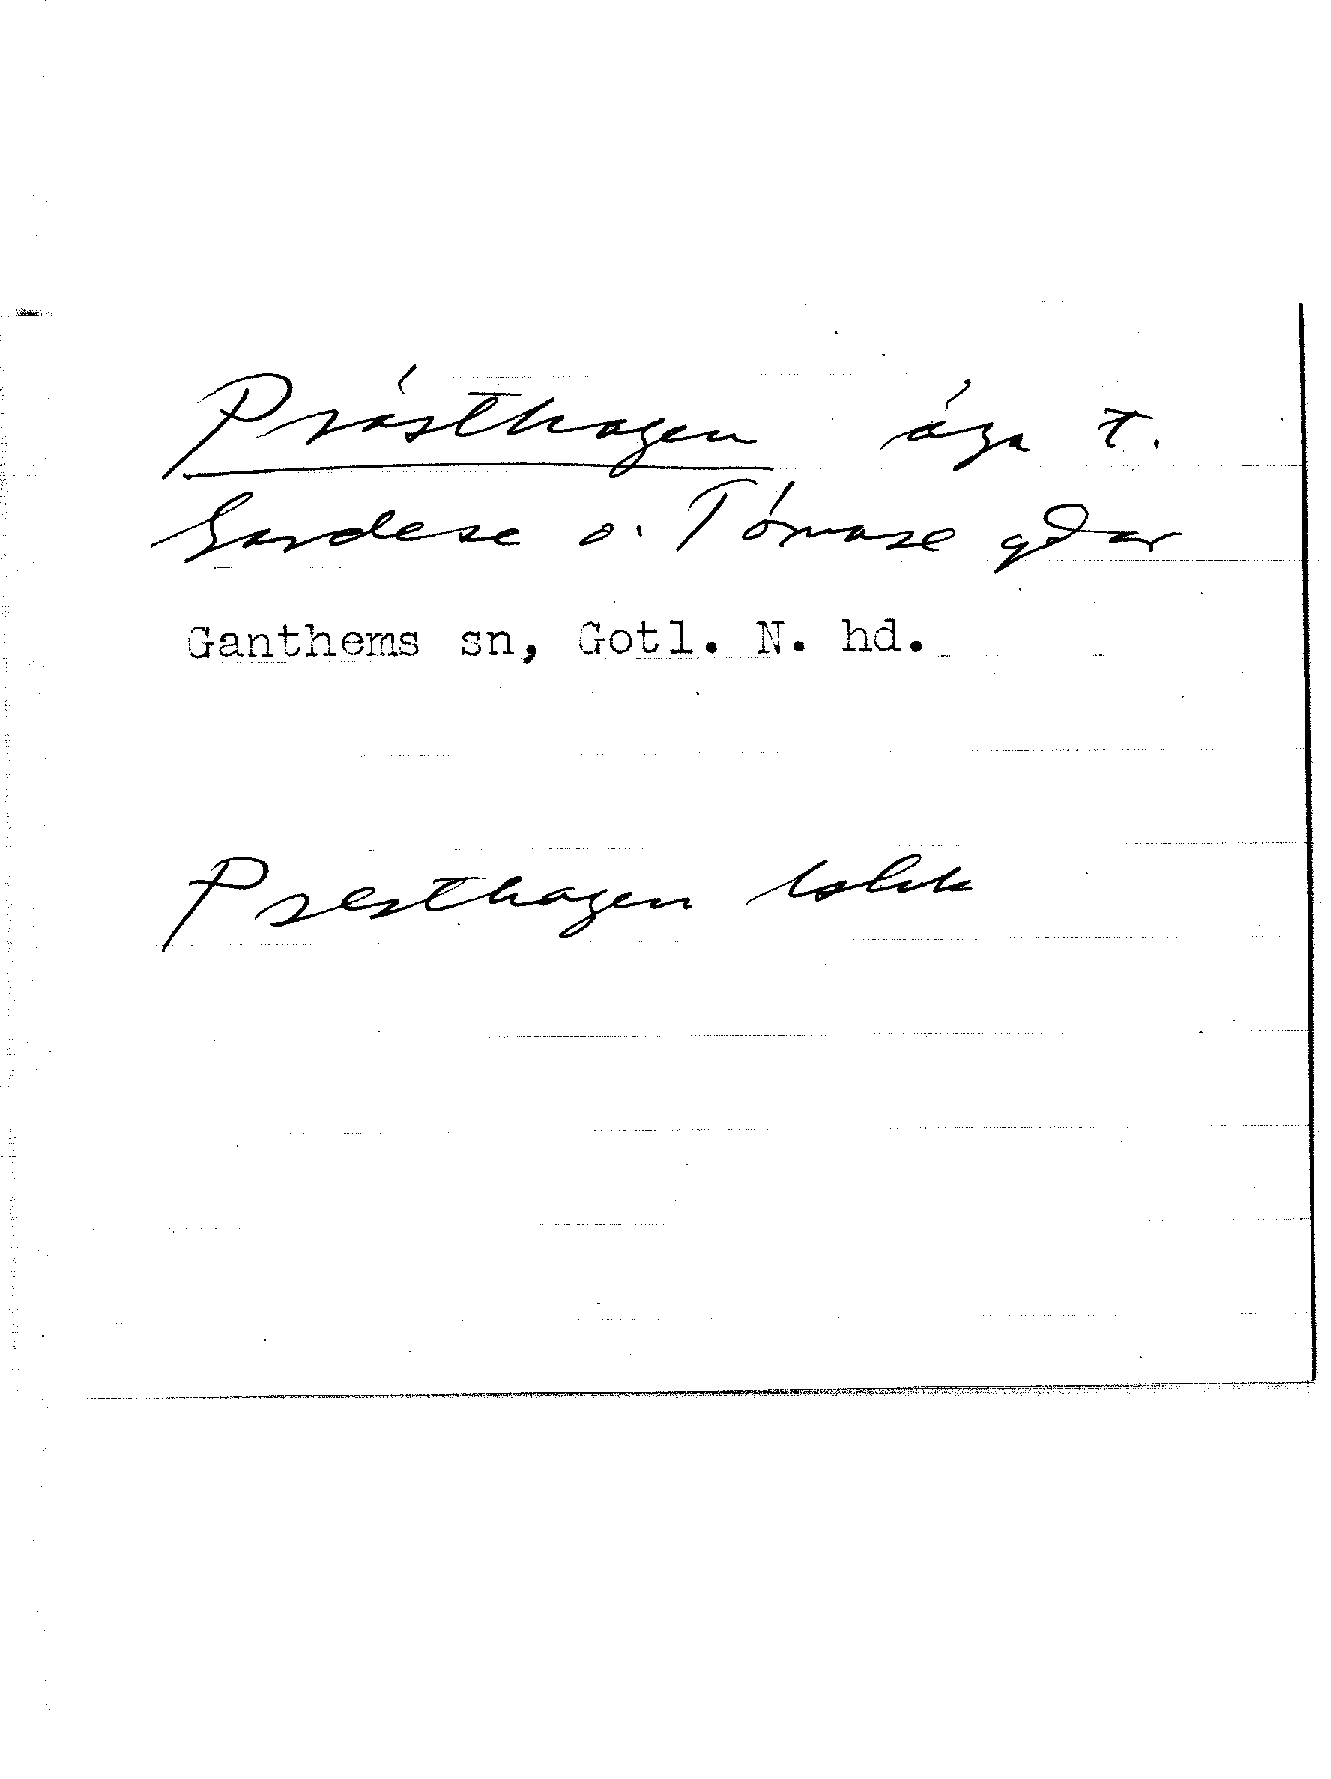 Prästhagen äga t.
Gardese o. Tomase gdar
Ganthems sn, Gotl. N. hd.
Presthagen